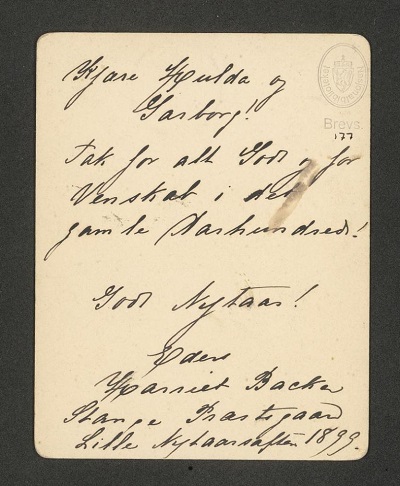 Kjære Hulda og
Garborg!
Tak for alt Godt og for
Venskab i det
gamle Aarhundrede!
Godt Nytaar!
Eders
Harriet Backer
Stange Præstegaard
Lille Nytaarsaften 1899.
Brevs.
177